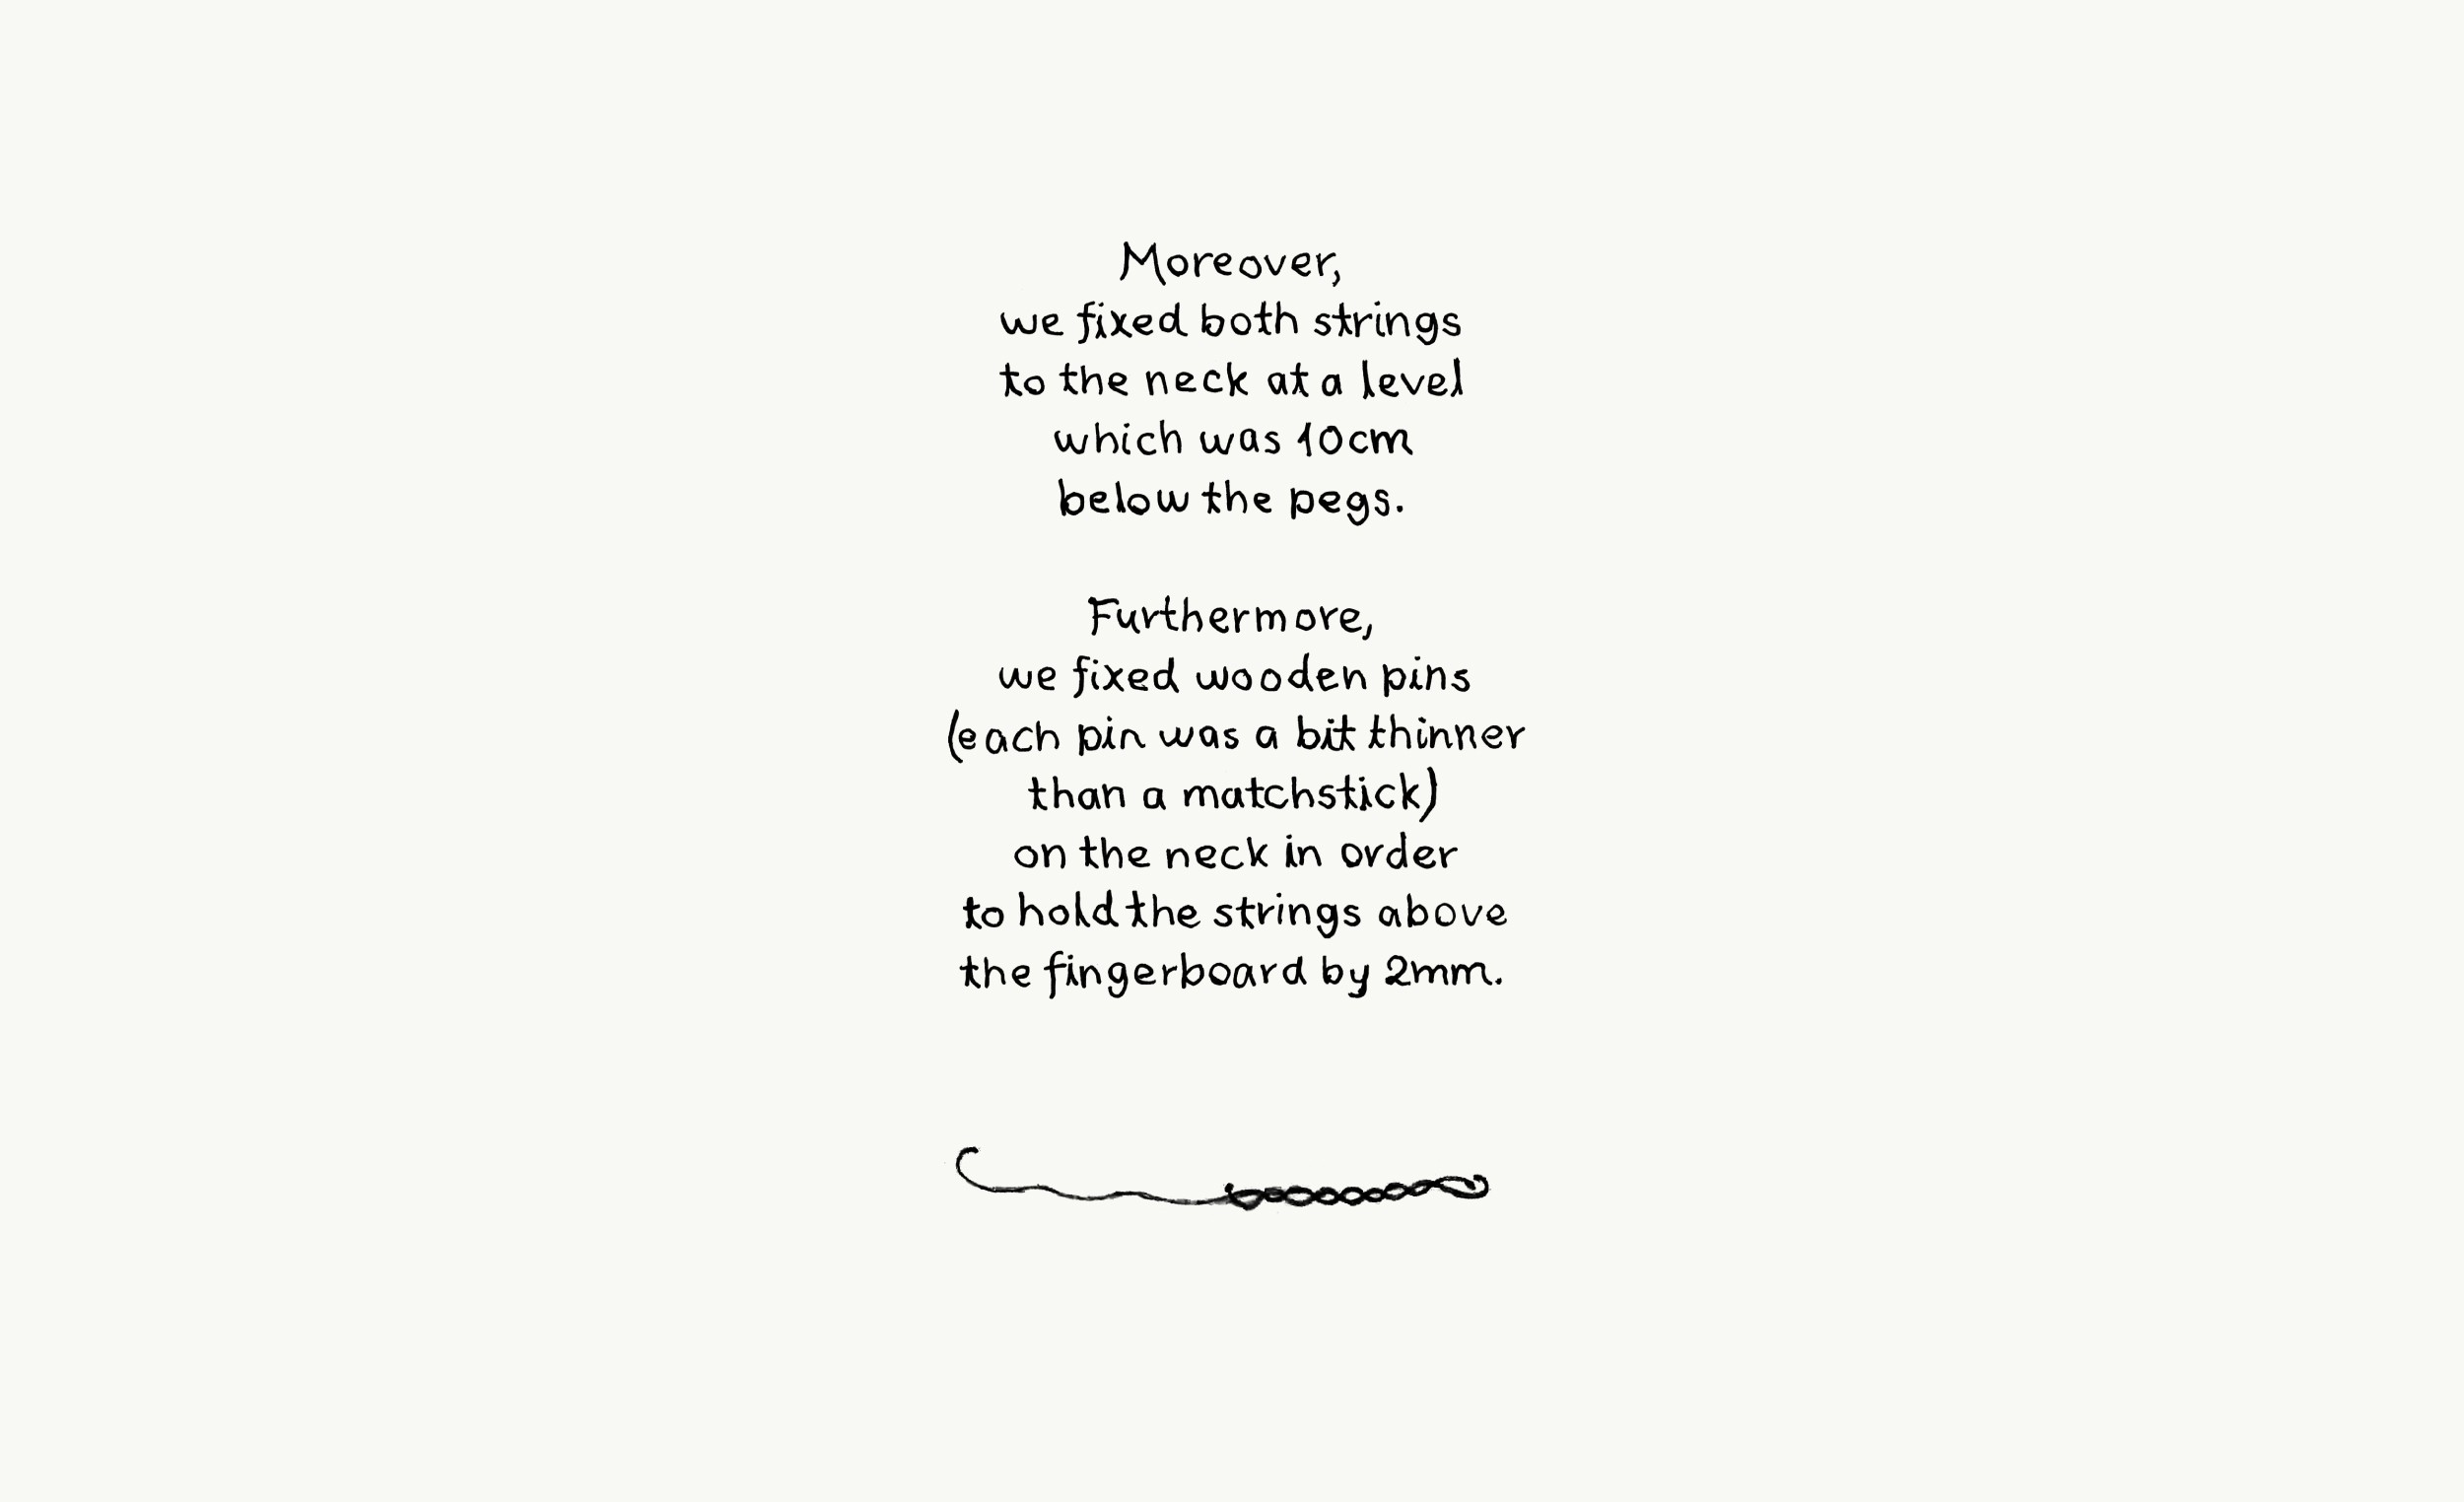 Moreover,
we fixed both strings
to the neck at a level
which was 10cm
below the pegs.
Furthermore,
we fixed wooden pins
(each pin was a bit thinner
than a matchstick)
on the neck in order
to hold the strings above
the fingerboard by 2mm.